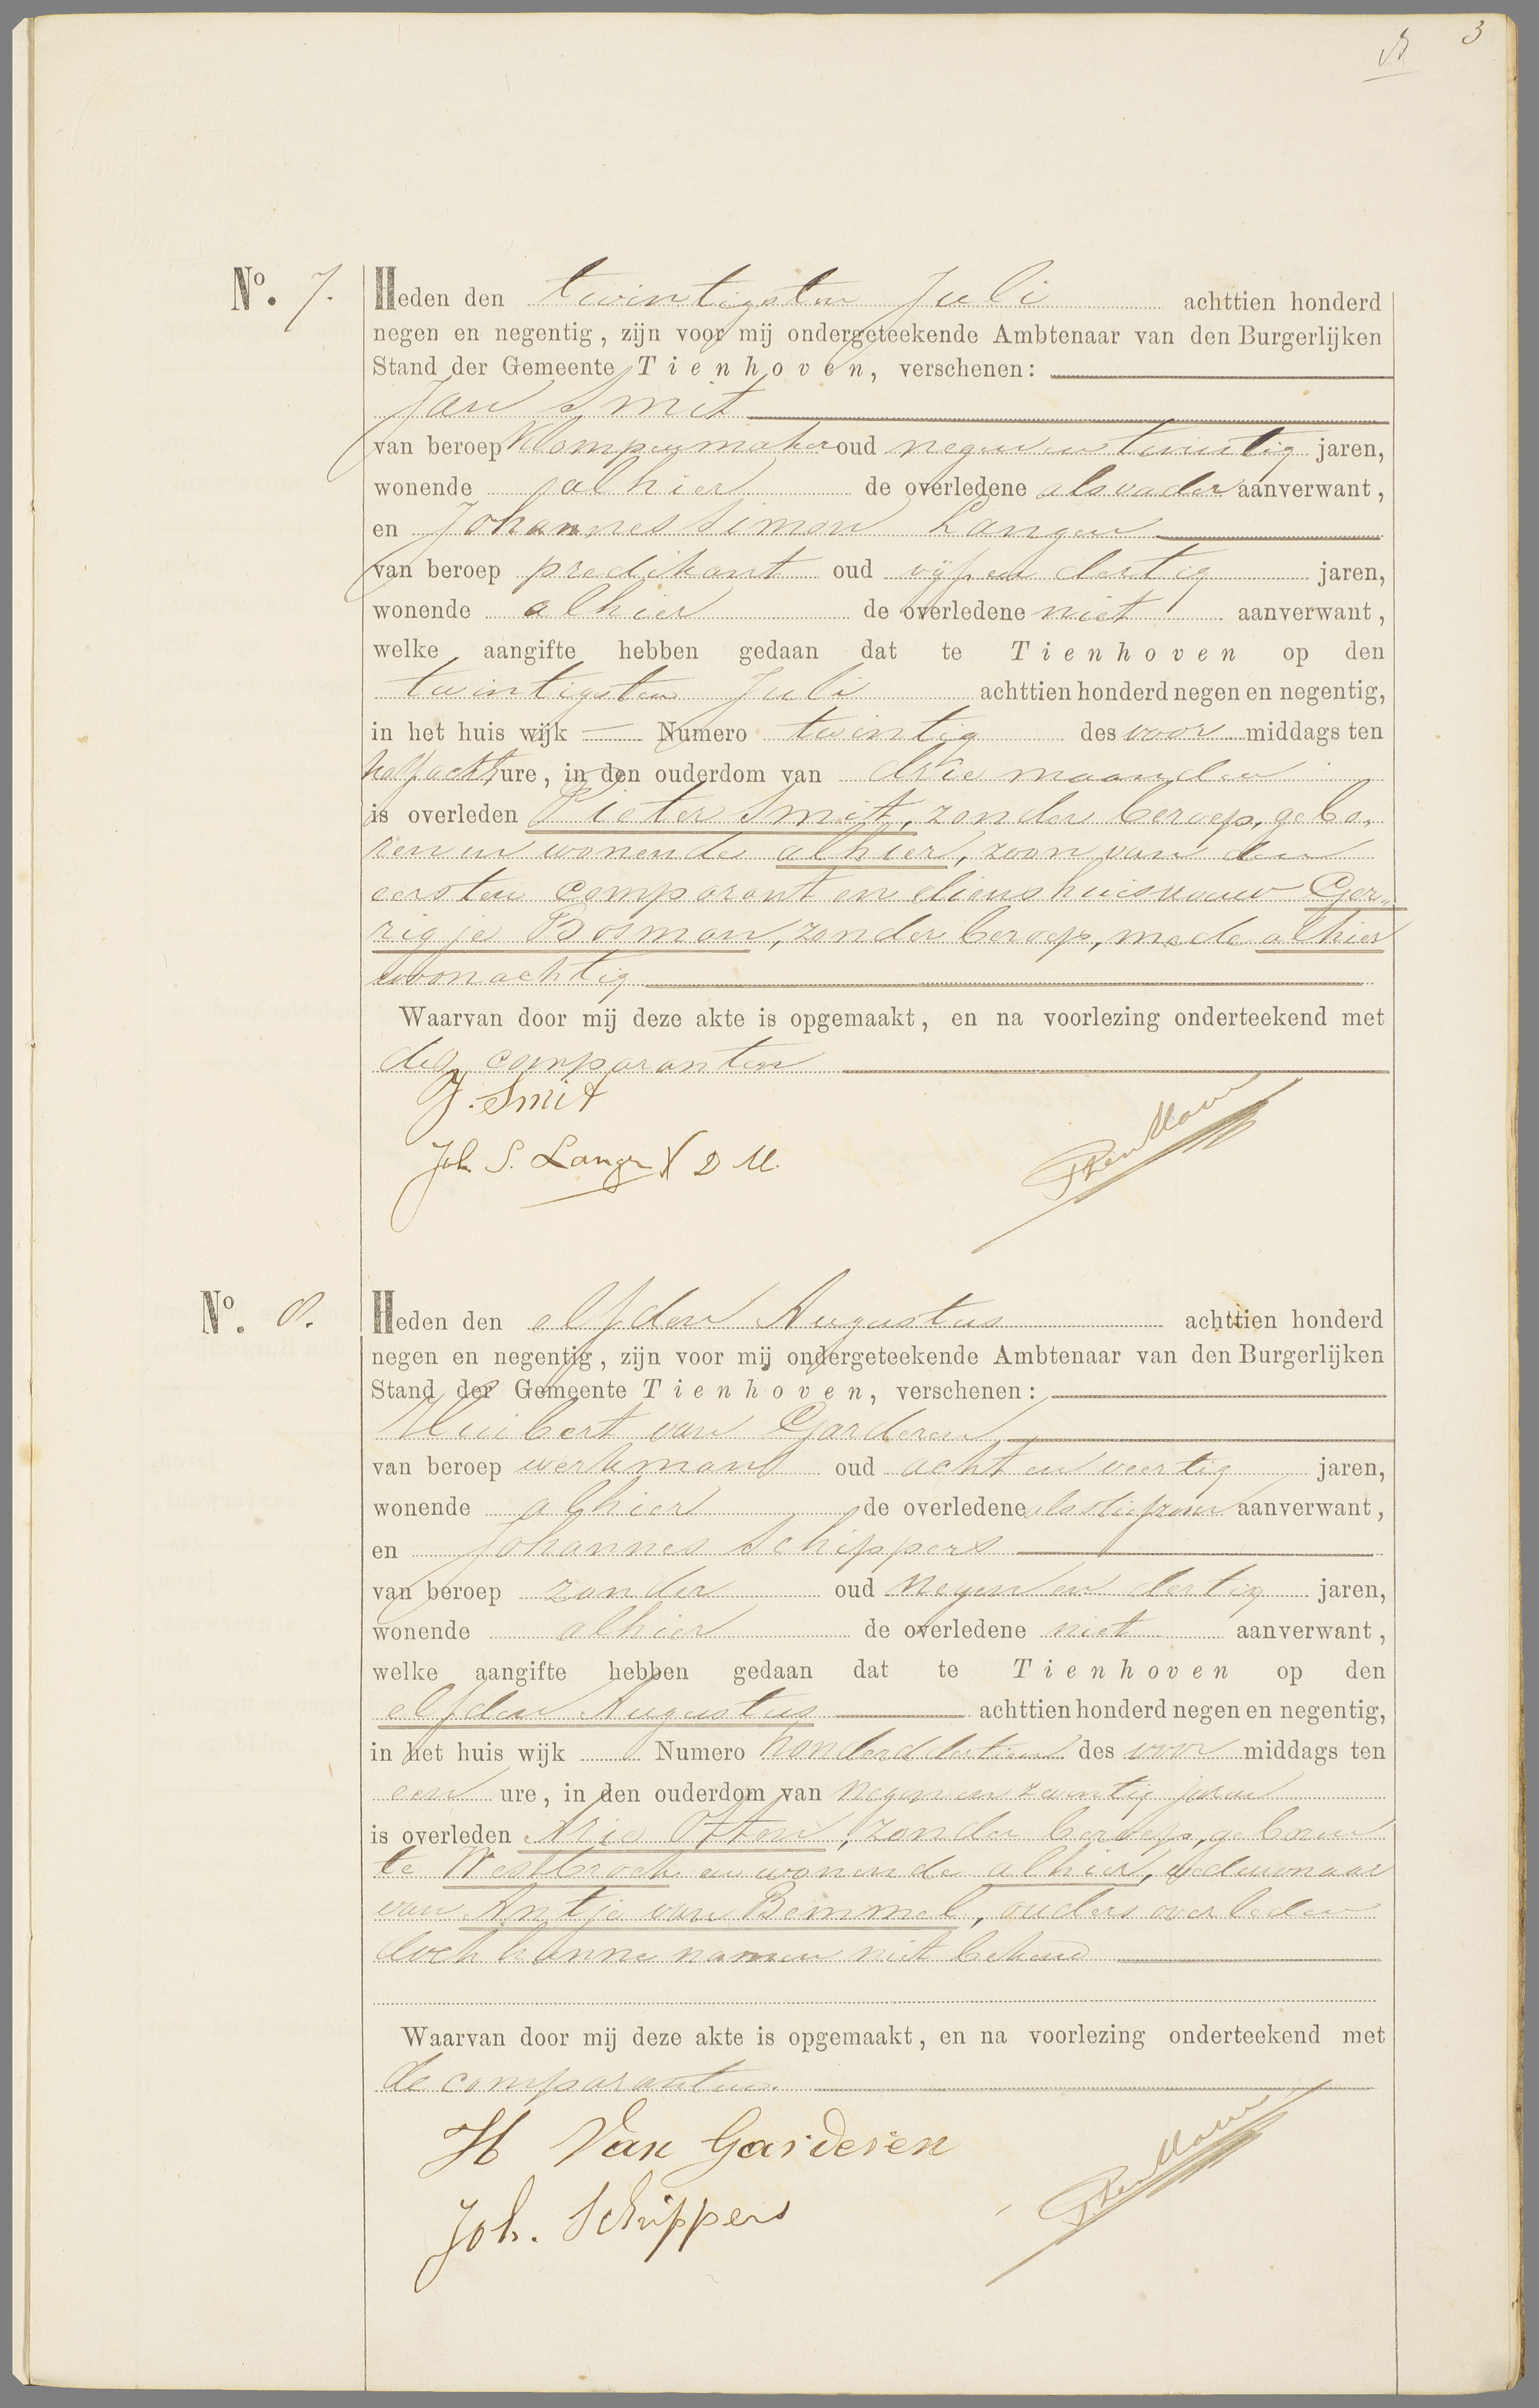 3
No. 7.
Heden den twintigsten Juli achttien honderd
negen en negentig, zijn voor mij ondergeteekende Ambtenaar van den Burgerlijken
Stand der Gemeente Tienhoven, verschenen:
Jan Smit
van beroep klompenmaker oud negen en twintig jaren,
wonende alhier de overledene als vader aanverwant,
en Johannes Simon Langen
van beroep predikant oud vijf en dertig jaren,
wonende alhier de overledene niet aanverwant,
welke aangifte hebben gedaan dat te Tienhoven op den
twintigsten Juli achttien honderd negen en negentig,
in het huis wijk — Numero twintig des voor middags ten
half acht ure, in den ouderdom van drie maanden
is overleden Pieter Smit, zonder beroep, gebo-
ren en wonende alhier, zoon van den
eersten comparant en diens huisvrouw Ger-
rigje Bosman, zonder beroep, mede alhier
woonachtig
Waarvan door mij deze akte is opgemaakt, en na voorlezing onderteekend met
de comparanten
J. Smit
Joh. S. Langen
No. 8.
Heden den elfden Augustus achttien honderd
negen en negentig, zijn voor mij ondergeteekende Ambtenaar van den Burgerlijken
Stand der Gemeente Tienhoven, verschenen:
Huibert van Garderen
van beroep werkman oud acht en veertig jaren,
wonende alhier de overledene als stiefzoon aanverwant,
en Johannes Schippers
van beroep zonder oud negen en dertig jaren,
wonende alhier de overledene niet aanverwant,
welke aangifte hebben gedaan dat te Tienhoven op den
elfden Augustus achttien honderd negen en negentig,
in het huis wijk Numero honderd dertien des voor middags ten
een ure, in den ouderdom van negen en zeventig jaren
is overleden Arie Otten, zonder beroep, geboren
te Westbroek en wonende alhier, weduwnaar
van Antje van Bemmel, ouders overleden
doch hunne namen niet bekend
Waarvan door mij deze akte is opgemaakt, en na voorlezing onderteekend met
de comparanten.
H Van Garderen
Joh. Schippers